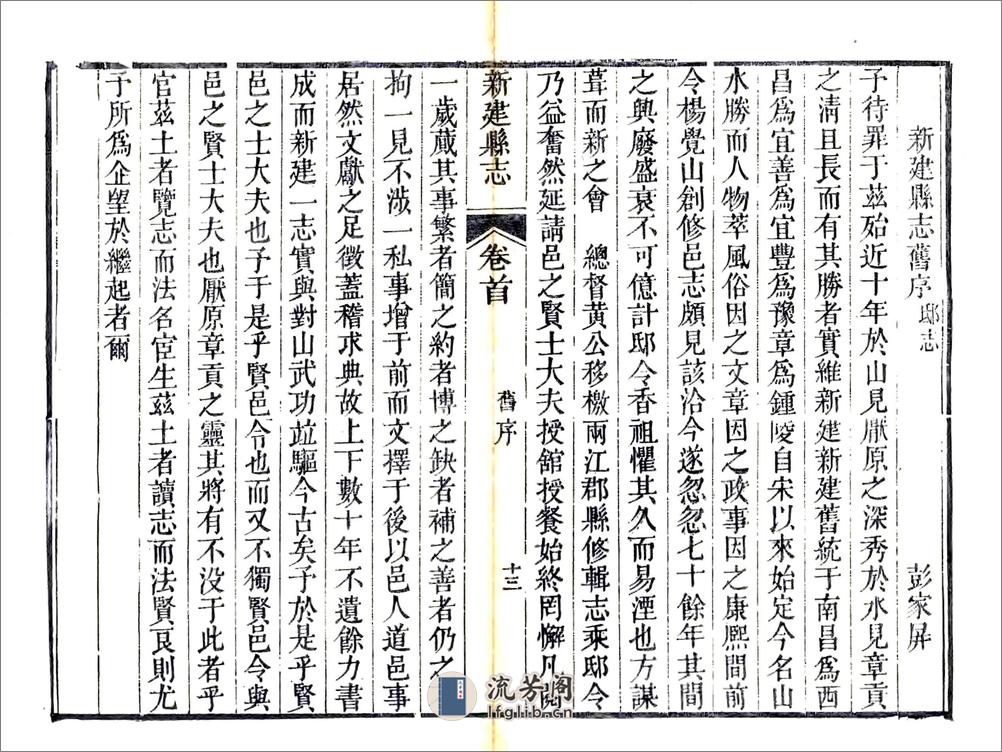 新建縣志舊序 邸志 彭家屏
予待罪于茲殆近十年於山見厭原之深秀於水見章貢
之淸且長而有其勝者實維新建新建舊統于南昌爲西
昌爲宜善爲宜豐爲豫章爲鍾陵自宋以來始定今名山
水勝而人物萃風俗因之文章因之政事因之康熙間前
令楊覺山創修邑志頗見該洽今遂忽忽七十餘年其間
之興廢盛衰不可億計邸令香祖懼其久而易湮也方謀
葺而新之會 總督黄公移檄兩江郡縣修輯志乘邸令
乃益奮然延請邑之賢士大夫授舘授餐始終罔懈凡閱
新建縣志 卷首 舊序 十三
一歲蕆其事繁者簡之約者博之缺者補之善者仍之
拘一見不涉一私事增于前而文擇于後以邑人道邑事
居然文獻之足徵蓋稽求典故上下數十年不遺餘力書
成而新建一志實與對山武功竝驅今古矣予於是乎賢
邑之士大夫也予于是乎賢邑令也而又不獨賢邑令與
邑之賢士大夫也厭原章貢之靈其將有不没于此者乎
官茲土者覽志而法名宦生茲土者讀志而法賢良則尤
予所爲企望於繼起者爾
流芳阁
lfglib.cn